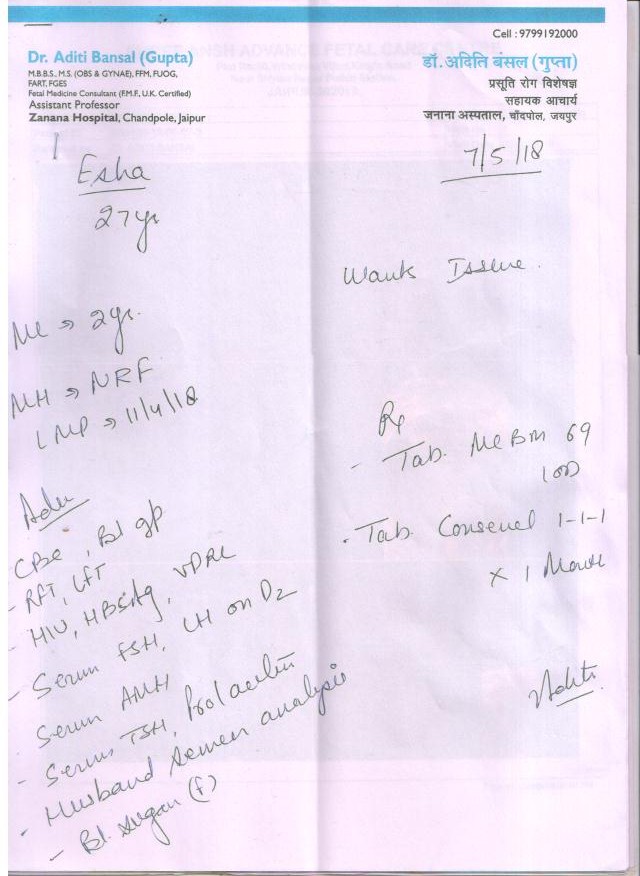 Cell : 9799192000
Dr. Aditi Bansal (Gupta)
M.B.B.S., M.S. (OBS & GYNAE), FFM, FIJOG,
FART, FGES
Fetal Medicine Consultant (F.M.F., U.K. Certified)
Assistant Professor
Zanana Hospital, Chandpole, Jaipur
डॉ. अदिति बंसल (गुप्ता)
प्रसूति रोग विशेषज्ञ
सहायक आचार्य
जनाना अस्पताल, चाँदपोल, जयपुर
7/5/18
Esha
27yr
Wants Issue
ML → 2yr.
MH → NRF
LMP → 11/4/18
Adv
- CBC, Bl gp
- RFT, LFT
- HIV, HBsAg, VDRL
- Serum FSH, LH on D2
Serum AMH
- Serum TSH, Prolactin
- Husband semen analysis
- Bl. sugar (f)
Rx
- Tab. MCBM 69
1 OD
. Tab. 1-1-1
x 1 Month
Aditi